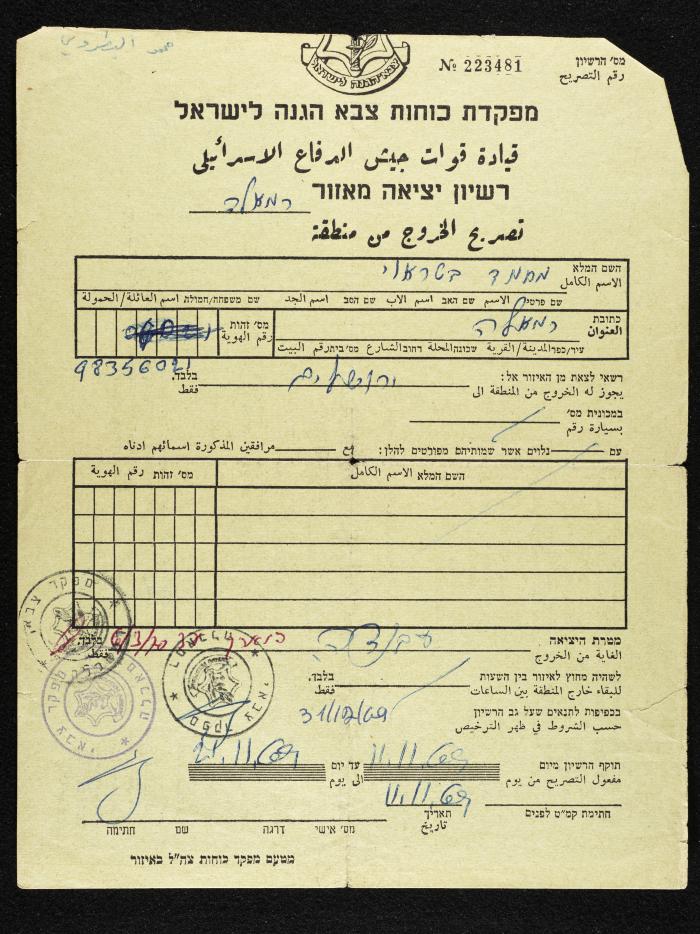 محمد البطروي
מס' הרשיון
رقم التصريح
№ 223481
צבא הגנה לישראל
מפקדת כוחות צבא הגנה לישראל
قيادة قوات جيش الدفاع الاسرائيلي
רשיון יציאה מאזור רמאללה
تصريح الخروج من منطقة
השם המלא
الاسم الكامل
שם פרטי الاسم שם האב اسم الاب שם הסב اسم الجد שם משפחה/חמולה اسم العائلة/الحمولة
כתובת
العنوان
רמאללה
עיר/כפר المدينة/القرية שכונה المحلة רחוב الشارع מס' בית رقم البيت
מס' זהות
رقم الهوية
98356021
רשאי לצאת מן האיזור אל: ירושלים בלבד.
يجوز له الخروج من المنطقة الى فقط
במכונית מס'
بسيارة رقم
עם נלוים אשר שמותיהם מפורטים להלן: مع مرافقين المذكورة اسمائهم ادناه
השם המלא الاسم الكامل
מס' זהות رقم الهوية
מטרת היציאה עבודה
الغاية من الخروج
בלבד.
فقط
מפקד צבאי
לשהיה מחוץ לאיזור בין השעות בלבד.
للبقاء خارج المنطقة بين الساعات فقط
רמאללה מפקד צבאי
בכפיפות לתנאים שעל גב הרשיון
حسب الشروط في ظهر الترخيص
תוקף הרשיון מיום 11.11.69 עד יום
مفعول التصريح من يوم الى يوم
11.11.69
חתימת קמ"ט לפנים
תאריך
تاريخ
מס' אישי דרגה שם חתימה
מטעם מפקד כוחות צה"ל באיזור